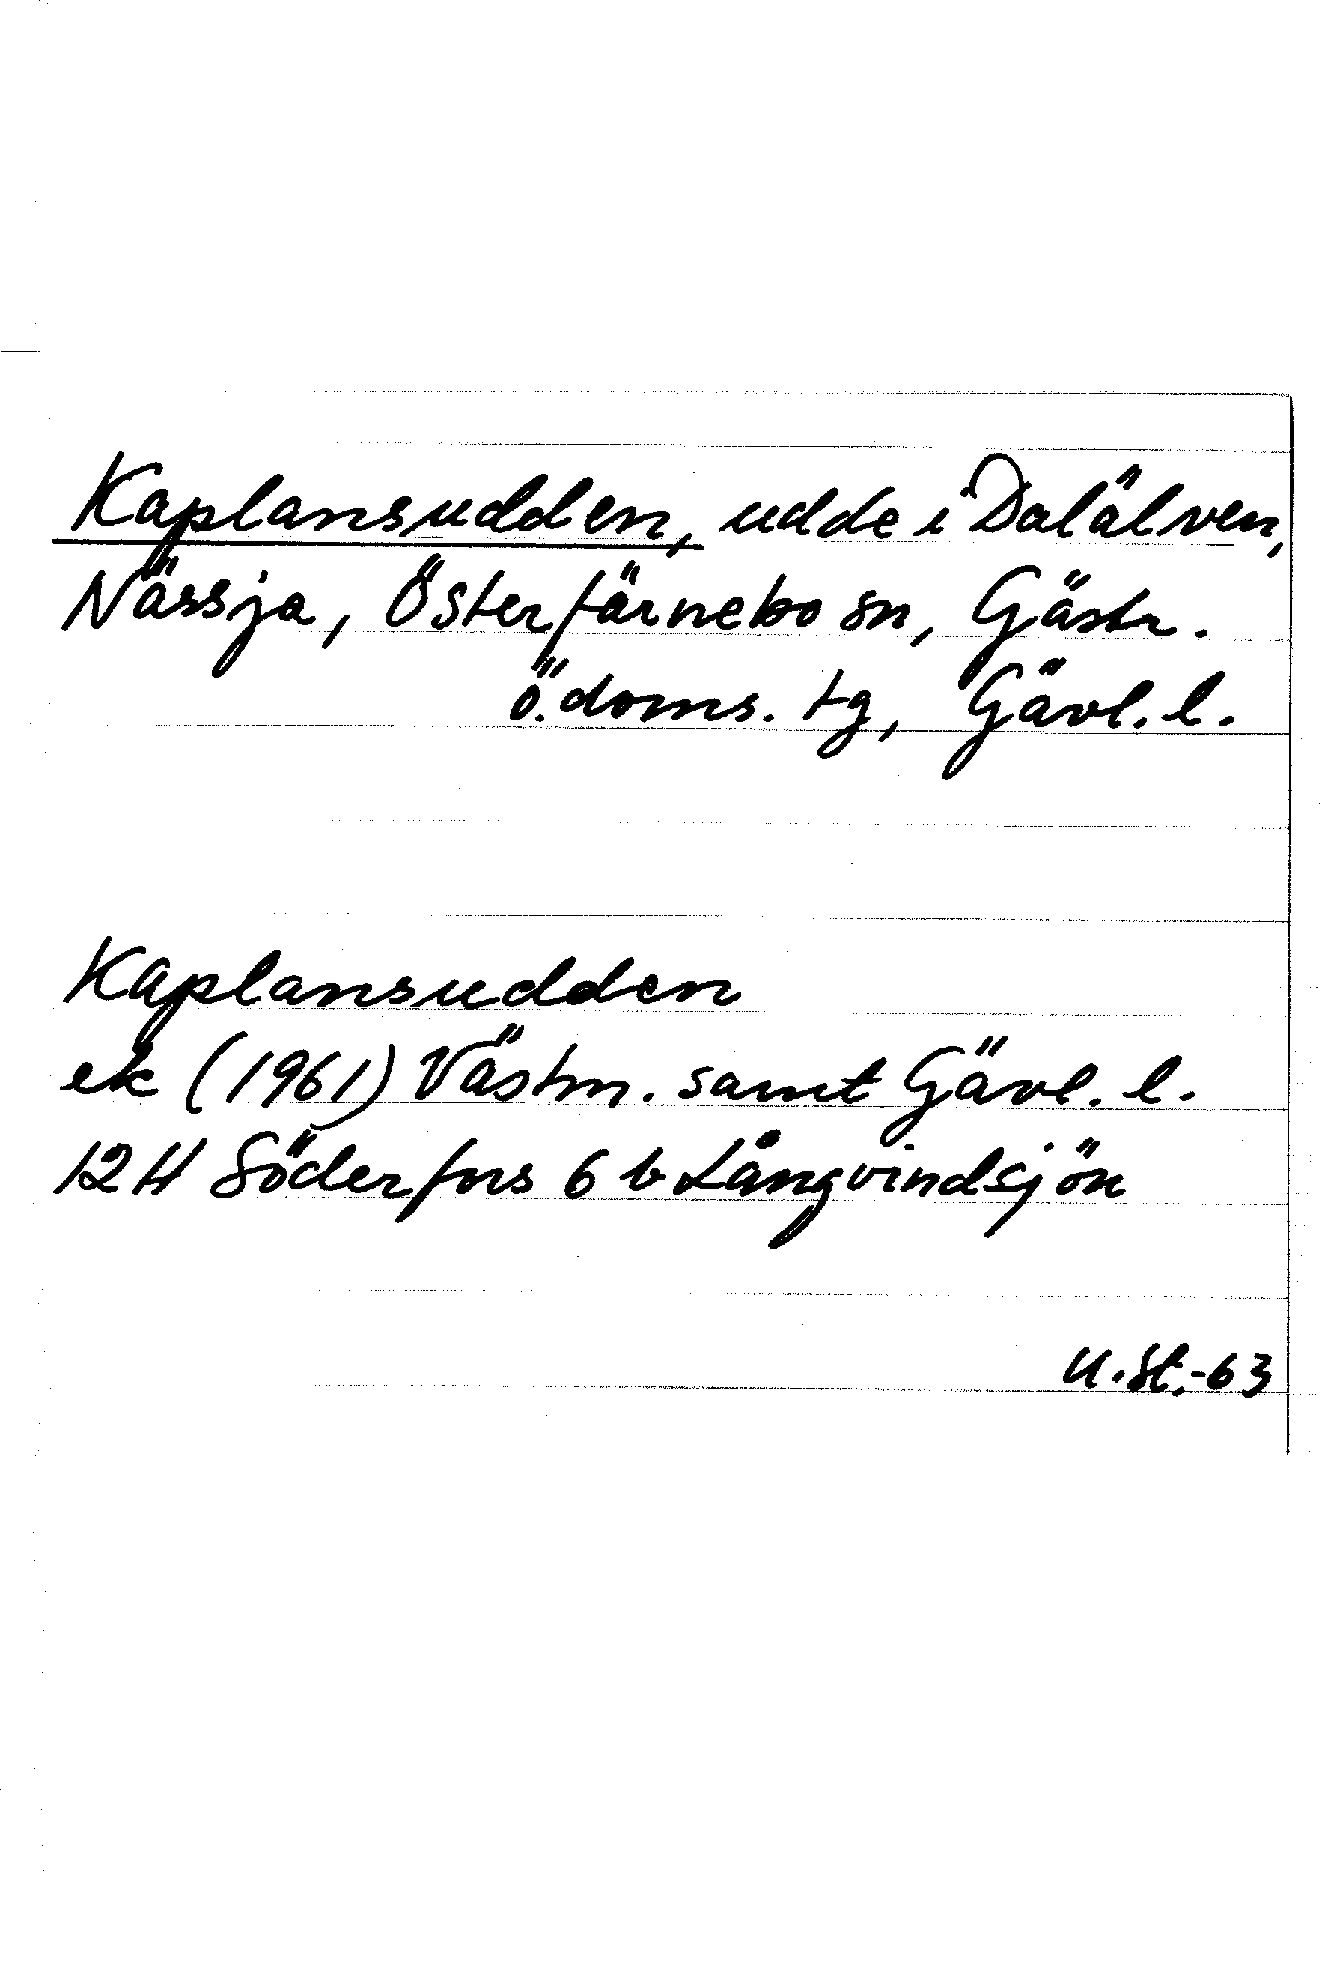 Kaplansudden, udde i Dalälven,
Nässja, Österfärnebo sn, Gästr.
ö. doms. tg, Gävl. l.
Kaplansudden
ek (1961) Västm. samt Gävl. l.
12 H Söderfors 6 b Långvindsjön
U. St. -63